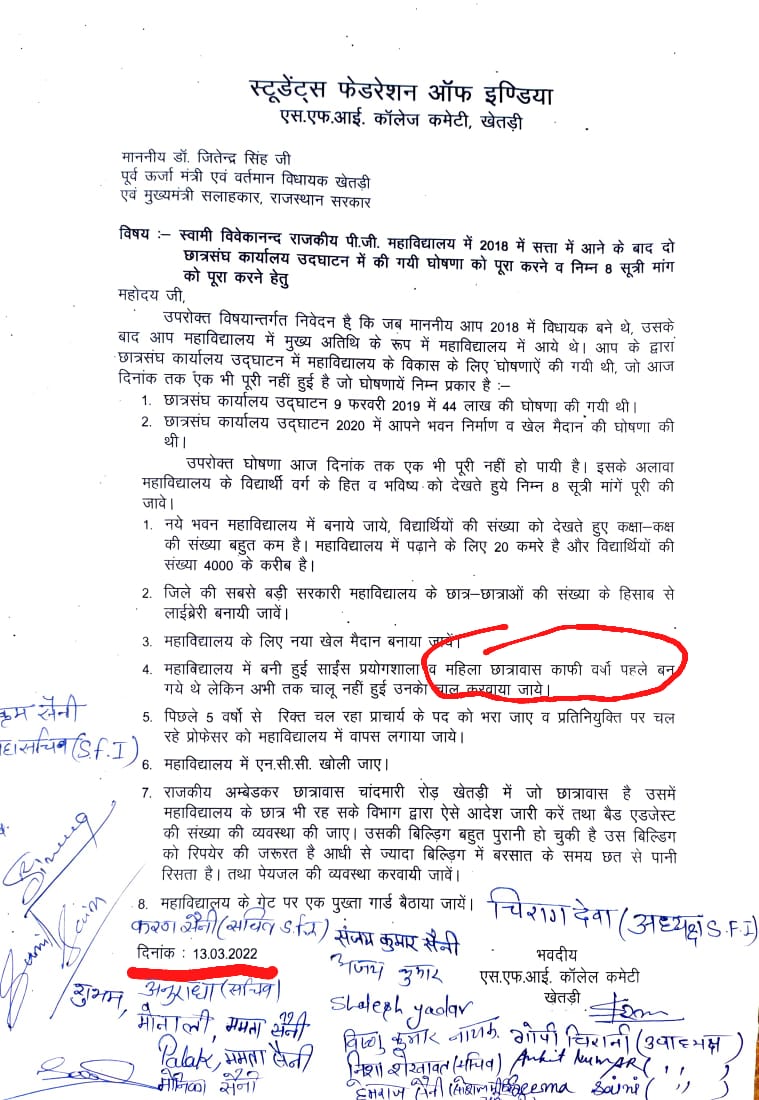 स्टूडेंट्स फेडरेशन ऑफ इण्डिया
एस.एफ.आई. कॉलेज कमेटी, खेतड़ी
माननीय डॉ. जितेन्द्र सिंह जी
पूर्व ऊर्जा मंत्री एवं वर्तमान विधायक खेतड़ी
एवं मुख्यमंत्री सलाहकार, राजस्थान सरकार
विषय :– स्वामी विवेकानन्द राजकीय पी.जी. महाविद्यालय में 2018 में सत्ता में आने के बाद दो
छात्रसंघ कार्यालय उदघाटन में की गयी घोषणा को पूरा करने व निम्न 8 सूत्री मांग
को पूरा करने हेतु
महोदय जी,
उपरोक्त विषयान्तर्गत निवेदन है कि जब माननीय आप 2018 में विधायक बने थे, उसके
बाद आप महाविद्यालय में मुख्य अतिथि के रूप में महाविद्यालय में आये थे। आप के द्वारा
छात्रसंघ कार्यालय उद्घाटन में महाविद्यालय के विकास के लिए घोषणाऐं की गयी थी, जो आज
दिनांक तक एक भी पूरी नहीं हुई है जो घोषणायें निम्न प्रकार है :–
1. छात्रसंघ कार्यालय उद्घाटन 9 फरवरी 2019 में 44 लाख की घोषणा की गयी थी।
2. छात्रसंघ कार्यालय उद्घाटन 2020 में आपने भवन निर्माण व खेल मैदान की घोषणा की
थी।
उपरोक्त घोषणा आज दिनांक तक एक भी पूरी नहीं हो पायी है। इसके अलावा
महाविद्यालय के विद्यार्थी वर्ग के हित व भविष्य को देखते हुये निम्न 8 सूत्री मांगें पूरी की
जावे।
1. नये भवन महाविद्यालय में बनाये जाये, विद्यार्थियों की संख्या को देखते हुए कक्षा–कक्ष
की संख्या बहुत कम है। महाविद्यालय में पढ़ाने के लिए 20 कमरे है और विद्यार्थियों की
संख्या 4000 के करीब है।
2. जिले की सबसे बड़ी सरकारी महाविद्यालय के छात्र–छात्राओं की संख्या के हिसाब से
लाईब्रेरी बनायी जावें।
3. महाविद्यालय के लिए नया खेल मैदान बनाया जावें।
4. महाविद्यालय में बनी हुई साईंस प्रयोगशाला व महिला छात्रावास काफी वर्षो पहले बन
गये थे लेकिन अभी तक चालू नहीं हुई उनको चालू करवाया जाये।
5. पिछले 5 वर्षो से रिक्त चल रहा प्राचार्य के पद को भरा जाए व प्रतिनियुक्ति पर चल
रहे प्रोफेसर को महाविद्यालय में वापस लगाया जाये।
6. महाविद्यालय में एन.सी.सी. खोली जाए।
7. राजकीय अम्बेडकर छात्रावास चांदमारी रोड़ खेतड़ी में जो छात्रावास है उसमें
महाविद्यालय के छात्र भी रह सके विभाग द्वारा ऐसे आदेश जारी करें तथा बैड एडजेस्ट
की संख्या की व्यवस्था की जाए। उसकी बिल्डिग बहुत पुरानी हो चुकी है उस बिल्डिग
को रिपयेर की जरूरत है आधी से ज्यादा बिल्डिग में बरसात के समय छत से पानी
रिसता है। तथा पेयजल की व्यवस्था करवायी जावें।
8. महाविद्यालय के गेट पर एक पुख्ता गार्ड बैठाया जायें।
सैनी
(S.f.I)
चिराग देवा (अध्यक्ष S.F.I)
करण सैनी (सचित S.f.I)
संजय कुमार सैनी
दिनांक : 13.03.2022
अजय कुमार
भवदीय
एस.एफ.आई. कॉलेल कमाटी
खेतड़ी
शुभम, अनुराधा (सचिव)
Shaleph yadav
मोनाली, ममता सैनी
विष्णु कुमार नायक गोपी चिरानी (उपाध्यक्ष)
Palak, ममता सैनी
निशा शेखावत (सचिव) Ankit Kumar ( ,, )
मोनिका सैनी
हेमराज सैनी Seema Saini ( ,, )